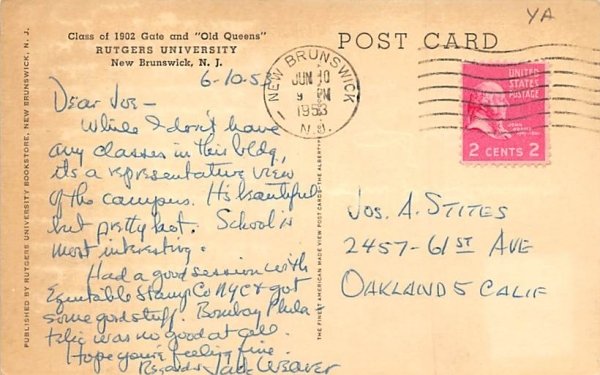 YA
Class of 1902 Gate and "Old Queens"
RUTGERS UNIVERSITY
New Brunswick, N. J.
POST CARD
6-10-53
NEW BRUNSWICK
JUN 10
9 PM
1953
N.J.
UNITED STATES POSTAGE
JOHN ADAMS
2 CENTS 2
Dear Joe -
While I don't have
any classes in this bldg,
its a representative view
of the campus. Its beautiful
but pretty hot. School is
most interesting.
Had a good session with
Equitable Stamp Co NYC & got
some good stuff. Bombay Phila-
telic was no good at all.
Hope you're feeling fine.
Regards Jack Weaver
JOS. A. STITES
2457-61ST AVE
OAKLAND 5 CALIF
PUBLISHED BY RUTGERS UNIVERSITY BOOKSTORE, NEW BRUNSWICK, N. J.
THE FINEST AMERICAN MADE VIEW POST CARDS-THE ALBERTYPE